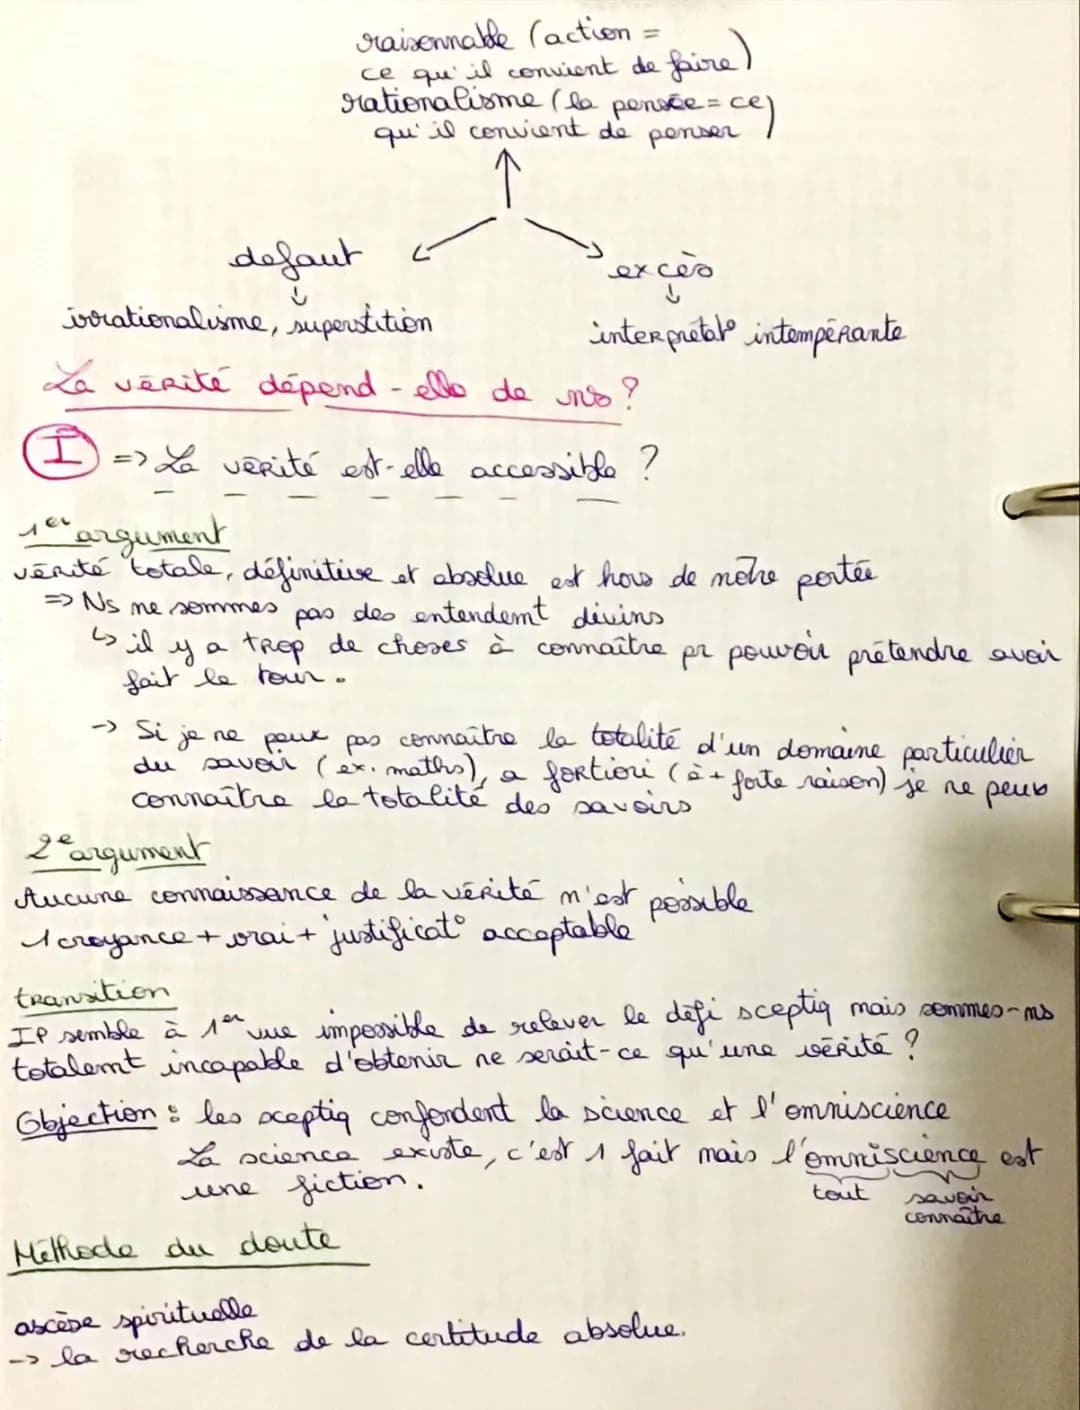 raisonnable (action =
ce qu'il convient de faire)
rationalisme (la pensée = ce
qu'il convient de penser)
défaut
excès
irrationalisme, superstition
interprétat° intempérante
La vérité dépend-elle de ns ?
I => La vérité est-elle accessible ?
1er argument
vérité totale, définitive et absolue est hors de notre portée
=> Ns ne sommes pas des entendemt divins
↳ il y a trop de choses à connaître pr pouvoir prétendre avoir
fait le tour.
-> Si je ne peux pas connaître la totalité d'un domaine particulier
du savoir (ex. maths), a fortiori (à + forte raison) je ne peux
connaître la totalité des savoirs
2e argument
Aucune connaissance de la vérité n'est possible
1 croyance + vrai + justificat° acceptable
transition
IP semble à 1er vue impossible de relever le défi sceptiq mais sommes-ns
totalemt incapable d'obtenir ne serait-ce qu'une vérité ?
Objection : les sceptiq confondent la science et l'omniscience
La science existe, c'est 1 fait mais l'omniscience est
une fiction.
tout savoir
connaître
Méthode du doute
ascèse spirituelle
-> la recherche de la certitude absolue.